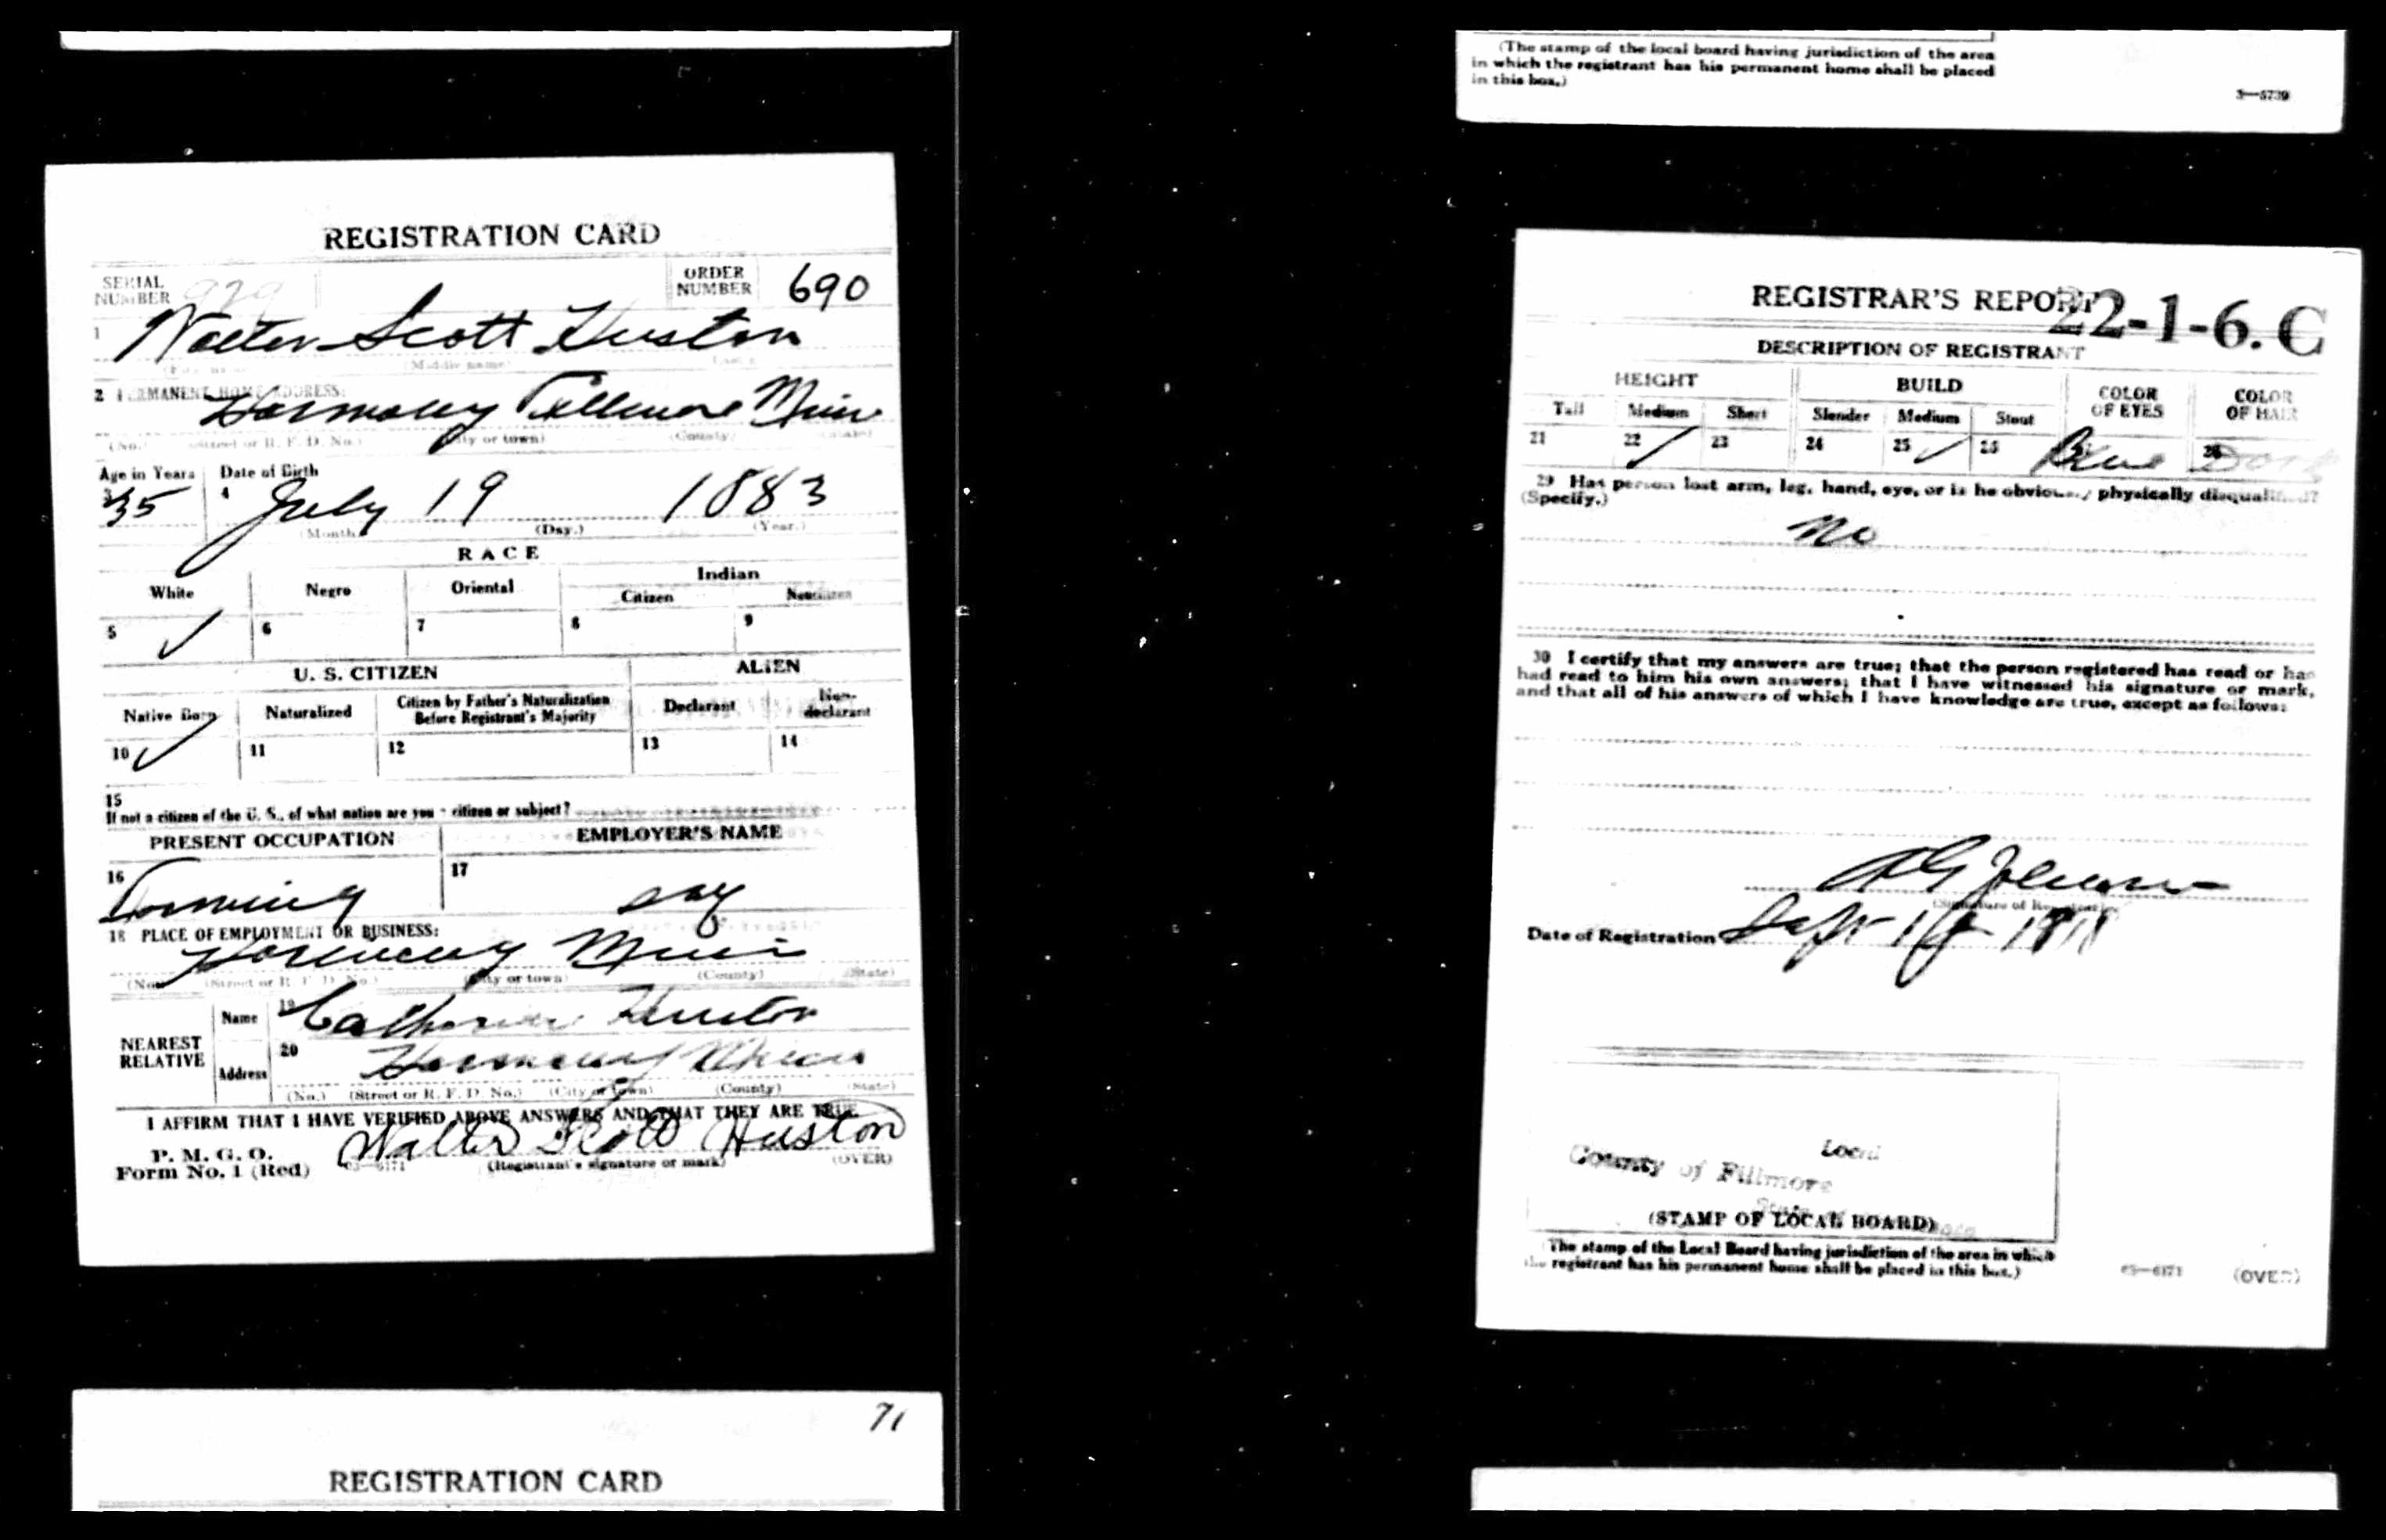 REGISTRATION CARD
SERIAL NUMBER 929 ORDER NUMBER 690
1 Walter Scott Huston
(Middle name)
2 PERMANENT HOME ADDRESS:
Harmony Fillmore Minn
(No.) (Street or R. F. D. No.) (City or town) (County) (State)
Age in Years Date of Birth
3 35 4 July 19 1883
(Month.) (Day.) (Year.)
RACE
White Negro Oriental Indian
Citizen Noncitizen
5 ✓ 6 7 8 9
U. S. CITIZEN ALIEN
Native Born Naturalized Citizen by Father's Naturalization Before Registrant's Majority Declarant Non-declarant
10 ✓ 11 12 13 14
15
If not a citizen of the U. S., of what nation are you a citizen or subject?
PRESENT OCCUPATION EMPLOYER'S NAME
16 Farming 17
18 PLACE OF EMPLOYMENT OR BUSINESS:
Harmony Minn
(No.) (Street or R. F. D. No.) (City or town) (County) (State)
NEAREST RELATIVE
Name 19 Catherine Huston
Address 20 Harmony Minn
(No.) (Street or R. F. D. No.) (City or town) (County) (State)
I AFFIRM THAT I HAVE VERIFIED ABOVE ANSWERS AND THAT THEY ARE TRUE
P. M. G. O.
Form No. 1 (Red) 03—6171 Walter Scott Huston
(Registrant's signature or mark) (OVER)
71
REGISTRATION CARD
(The stamp of the local board having jurisdiction of the area
in which the registrant has his permanent home shall be placed
in this box.)
3—5739
REGISTRAR'S REPORT 22-1-6. C
DESCRIPTION OF REGISTRANT
HEIGHT BUILD COLOR OF EYES COLOR OF HAIR
Tall Medium Short Slender Medium Stout
21 22 ✓ 23 24 25 ✓ 26 Blue 28 Dark
29 Has person lost arm, leg, hand, eye, or is he obviously physically disqualified?
(Specify.)
No
30 I certify that my answers are true; that the person registered has read or has
had read to him his own answers; that I have witnessed his signature or mark,
and that all of his answers of which I have knowledge are true, except as follows:
(Signature of Registrar)
Date of Registration Sept 12 1918
Local
County of Fillmore
State of
(STAMP OF LOCAL BOARD)
(The stamp of the Local Board having jurisdiction of the area in which
the registrant has his permanent home shall be placed in this box.)
03—6171 (OVER)